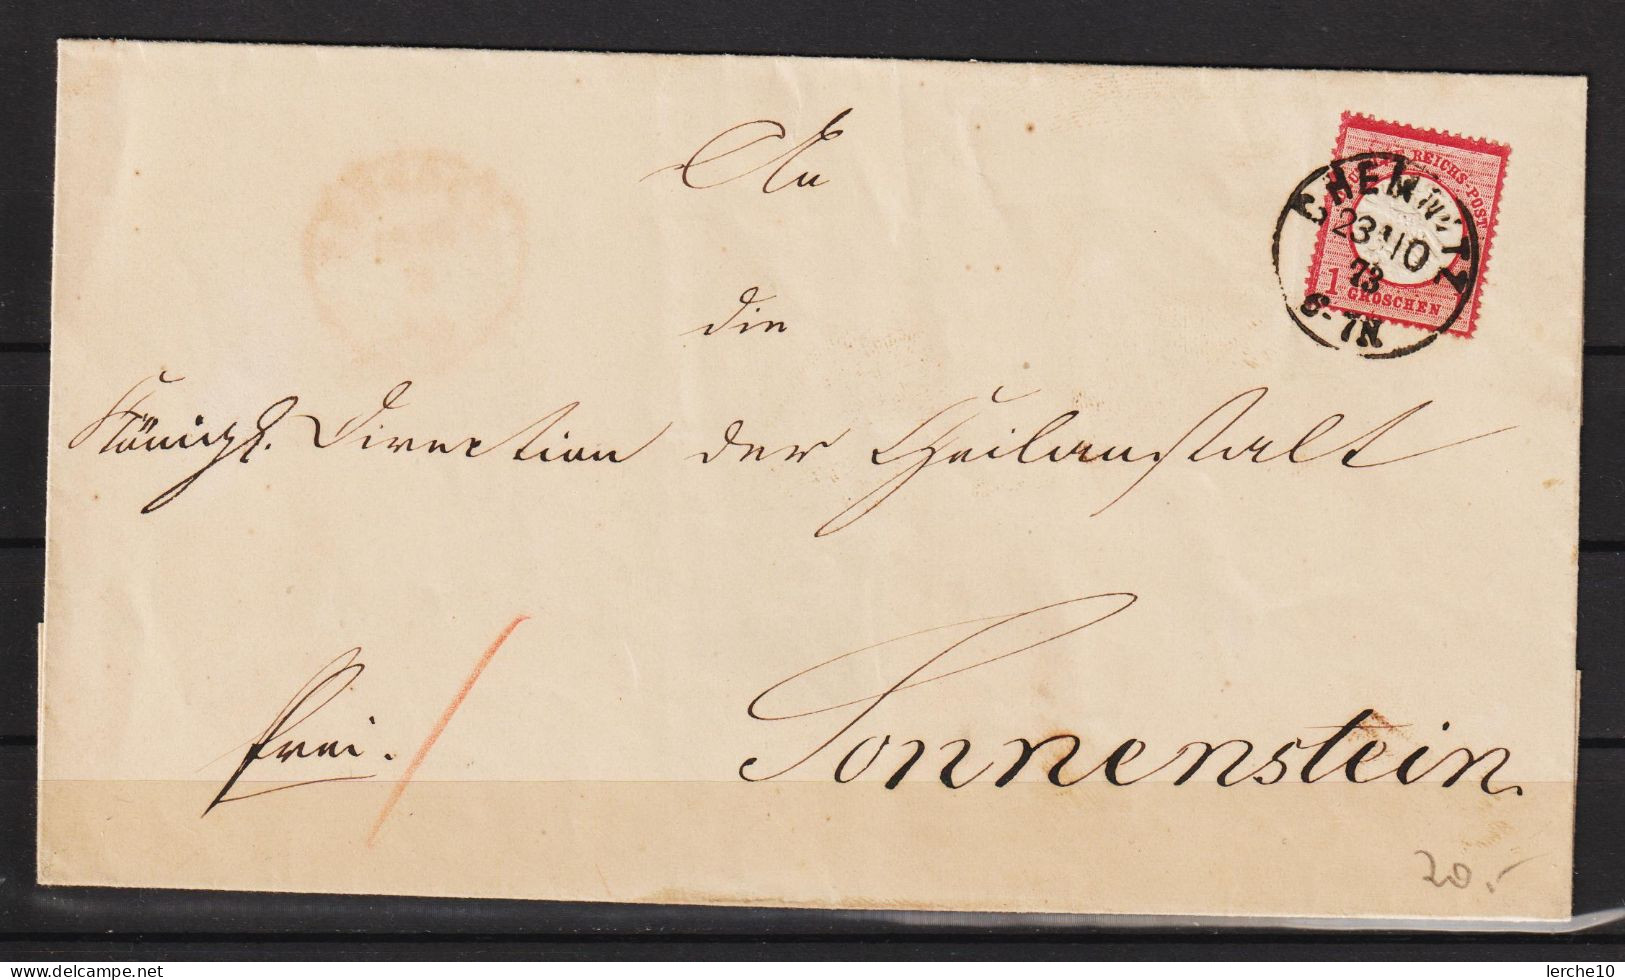 An
die
Königl. Direction der Heilanstalt
Sonnenstein.
frei.
REICHS-POST
1 GROSCHEN
CHEMNITZ
23 10
73
6-7N
20.-
delcampe.net
lerche10